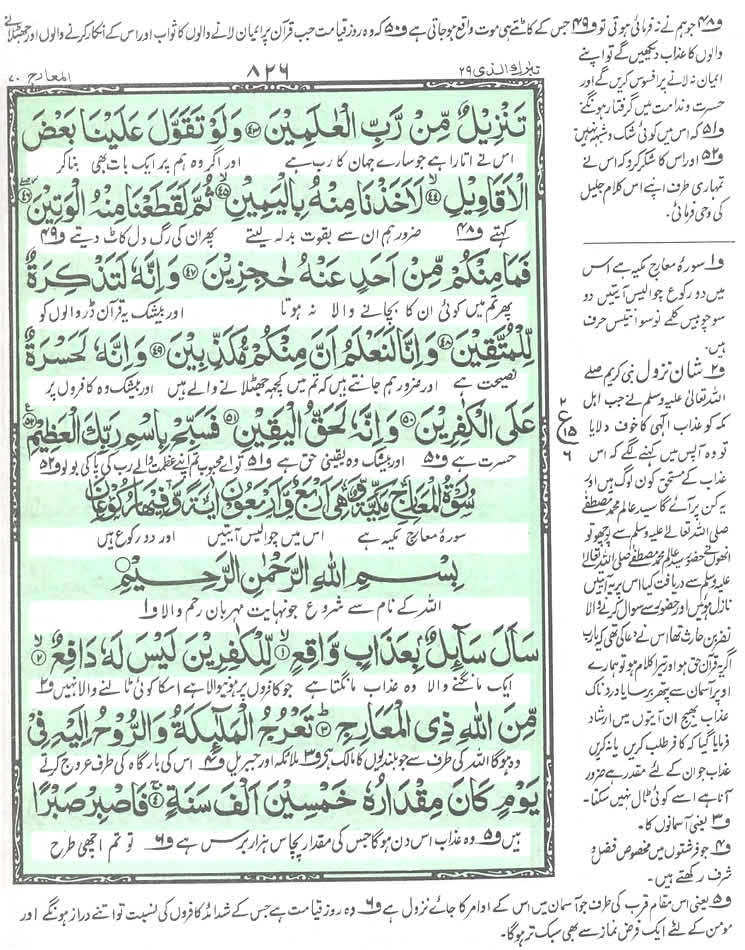 و۴۸ جو ہم نے نہ فرمائی ہوتی تو و۴۹ جس کے کاٹتے ہی موت واقع ہوجاتی ہے و۵۰ کہ وہ روز قیامت جب قرآن پر ایمان لانے والوں کا ثواب اور اس کے انکار کرنے والوں اور جھٹلانے
والوں کا عذاب دیکھیں گے تو اپنے
ایمان نہ لانے پر افسوس کریں گے اور
حسرت و ندامت میں گرفتار ہونگے
و۵۱ کہ اس میں کوئی شک و شبہ نہیں
و۵۲ اور اس کا شکر کرو کہ اس نے
تمہاری طرف اپنے اس کلام جلیل
کی وحی فرمائی.
تبٰرک الذی ۲۹
۸۲۶
المعارج ۷۰
تَنْزِيْلٌ مِّنْ رَّبِّ الْعٰلَمِيْنَ ﴿۴۳﴾ وَلَوْ تَقَوَّلَ عَلَيْنَا بَعْضَ
اس نے اتارا ہے جو سارے جہان کا رب ہے اور اگر وہ ہم پر ایک بات بھی بنا کر
الْاَقَاوِيْلِ ﴿۴۴﴾ لَاَخَذْنَا مِنْهُ بِالْيَمِيْنِ ﴿۴۵﴾ ثُمَّ لَقَطَعْنَا مِنْهُ الْوَتِيْنَ ﴿۴۶﴾
کہتے و۴۸ ضرور ہم ان سے بقوت بدلہ لیتے پھر ان کی رگ دل کاٹ دیتے و۴۹
فَمَا مِنْكُمْ مِّنْ اَحَدٍ عَنْهُ حٰجِزِيْنَ ﴿۴۷﴾ وَاِنَّهٗ لَتَذْكِرَةٌ
پھر تم میں کوئی ان کا بچانے والا نہ ہوتا اور بیشک یہ قرآن ڈر والوں کو
لِّلْمُتَّقِيْنَ ﴿۴۸﴾ وَاِنَّا لَنَعْلَمُ اَنَّ مِنْكُمْ مُّكَذِّبِيْنَ ﴿۴۹﴾ وَاِنَّهٗ لَحَسْرَةٌ
نصیحت ہے اور ضرور ہم جانتے ہیں کہ تم میں کچھ جھٹلانے والے ہیں اور بیشک وہ کافروں پر
عَلَى الْكٰفِرِيْنَ ﴿۵۰﴾ وَاِنَّهٗ لَحَقُّ الْيَقِيْنِ ﴿۵۱﴾ فَسَبِّحْ بِاسْمِ رَبِّكَ الْعَظِيْمِ ﴿۵۲﴾
حسرت ہے و۵۰ اور بیشک وہ یقینی حق ہے و۵۱ تو اے محبوب تم اپنے عظمت والے رب کی پاکی بولو و۵۲
سُوْرَةُ الْمَعَارِجِ مَكِّيَّةٌ وَّهِيَ اَرْبَعٌ وَّاَرْبَعُوْنَ اٰيَةً وَّفِيْهَا رُكُوْعَانِ
سورۂ معارج مکیہ ہے اس میں چوالیس آیتیں اور دو رکوع ہیں
بِسْمِ اللّٰهِ الرَّحْمٰنِ الرَّحِيْمِ
اللہ کے نام سے شروع جو نہایت مہربان رحم والا و۱
سَاَلَ سَآئِلٌۢ بِعَذَابٍ وَّاقِعٍ ﴿۱﴾ لِّلْكٰفِرِيْنَ لَيْسَ لَهٗ دَافِعٌ ﴿۲﴾
ایک مانگنے والا وہ عذاب مانگتا ہے جو کافروں پر ہونیوالا ہے اسکا کوئی ٹالنے والا نہیں و۲
مِّنَ اللّٰهِ ذِي الْمَعَارِجِ ﴿۳﴾ تَعْرُجُ الْمَلٰٓئِكَةُ وَالرُّوْحُ اِلَيْهِ فِيْ
وہ ہوگا اللہ کی طرف سے جو بلندیوں کا مالک ہے و۳ ملائکہ اور جبریل و۴ اس کی بارگاہ کی طرف عروج کرتے
يَوْمٍ كَانَ مِقْدَارُهٗ خَمْسِيْنَ اَلْفَ سَنَةٍ ﴿۴﴾ فَاصْبِرْ صَبْرًا
ہیں و۵ وہ عذاب اس دن ہوگا جس کی مقدار پچاس ہزار برس ہے و۶ تو تم اچھی طرح
۲
ع
۱۵
۶
و۱ سورۂ معارج مکیہ ہے اس
میں دو رکوع چوالیس آیتیں دو
سو چوبیس کلمے نو سو انتیس حرف
ہیں.
و۲ شان نزول نبی کریم صلے
اللہ تعالٰی علیہ وسلم نے جب اہل
مکہ کو عذاب الٰہی کا خوف دلایا
تو وہ آپس میں کہنے لگے کہ اس
عذاب کے مستحق کون لوگ ہیں اور
یہ کن پر آئے گا سید عالم محمد مصطفٰے
صلی اللہ تعالٰی علیہ وسلم سے پوچھو تو
انھوں نے حضور سید عالم محمد مصطفٰے صلی اللہ تعالٰی
علیہ وسلم سے دریافت کیا اس پر یہ آیتیں
نازل ہوئیں اور حضور سے سوال کرنے والا
نضر بن حارث تھا اس نے دعا کی تھی کہ یارب
اگر یہ قرآن حق ہو اور تیرا کلام ہو تو ہمارے
اوپر آسمان سے پتھر برسا یا دردناک
عذاب بھیج ان آیتوں میں ارشاد
فرمایا گیا کہ کافر طلب کریں یا نہ کریں
عذاب جو ان کے لئے مقدر ہے ضرور
آنا ہے اسے کوئی ٹال نہیں سکتا.
و۳ یعنی آسمانوں کا.
و۴ جو فرشتوں میں مخصوص فضل و
شرف رکھتے ہیں.
و۵ یعنی اس مقام قرب کی طرف جو آسمان میں اس کے اوامر کا جائے نزول ہے و۶ وہ روز قیامت ہے جس کے شدائد کافروں کی نسبت تو اتنے دراز ہونگے اور
مومن کے لئے ایک فرض نماز سے بھی سبک تر ہوگا.